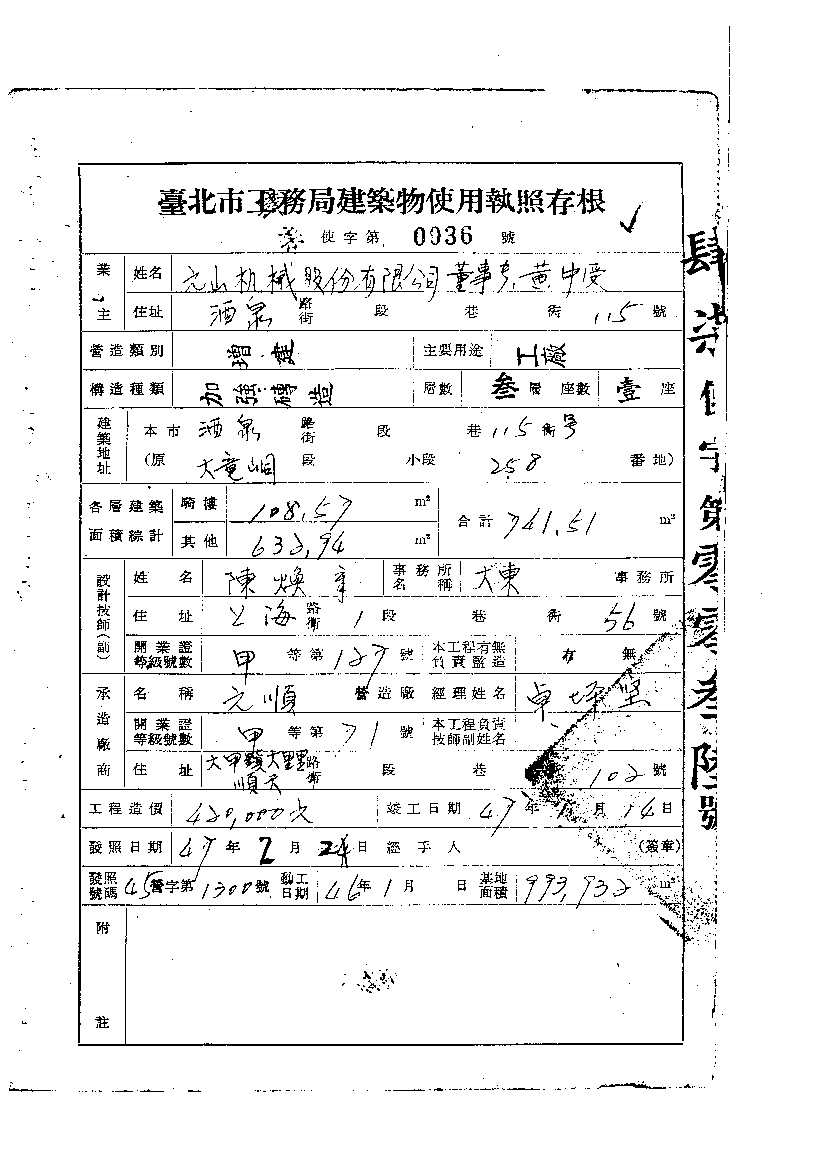 臺北市工務局建築物使用執照存根
使字第 0036 號
業主 姓名 元山机械股份有限公司董事長黃中受
住址 酒泉 路街 段 巷 衖 115 號
營造類別 增建 主要用途 工廠
構造種類 加強磚造 層數 叁層 座數 壹座
建築地址 本市 酒泉 路街 段 巷 115 衖号
(原 大竜峒 段 小段 258 番地)
各層建築面積綜計 騎樓 108.57 m² 合計 741.51 m²
其他 632.94 m²
設計技師(副) 姓名 陳煥 事務所名稱 大東 事務所
住址 上海 路街 1 段 巷 衖 56 號
開業證等級號數 甲 等第 127 號 本工程有無負責監造 有 無
承造廠商 名稱 元順 營造廠 經理姓名 卓
開業證等級號數 甲 等第 71 號 本工程負責技師副姓名
住址 大甲鎮大里里順天 路街 段 巷 102 號
工程造價 420,000元 竣工日期 47年1月14日
發照日期 47年2月24日 經手人 (簽章)
發照號碼 45營字第1300號 動工日期 46年1月 日 基地面積 993,932 m²
附註
肆柒使字第零零叁陸號